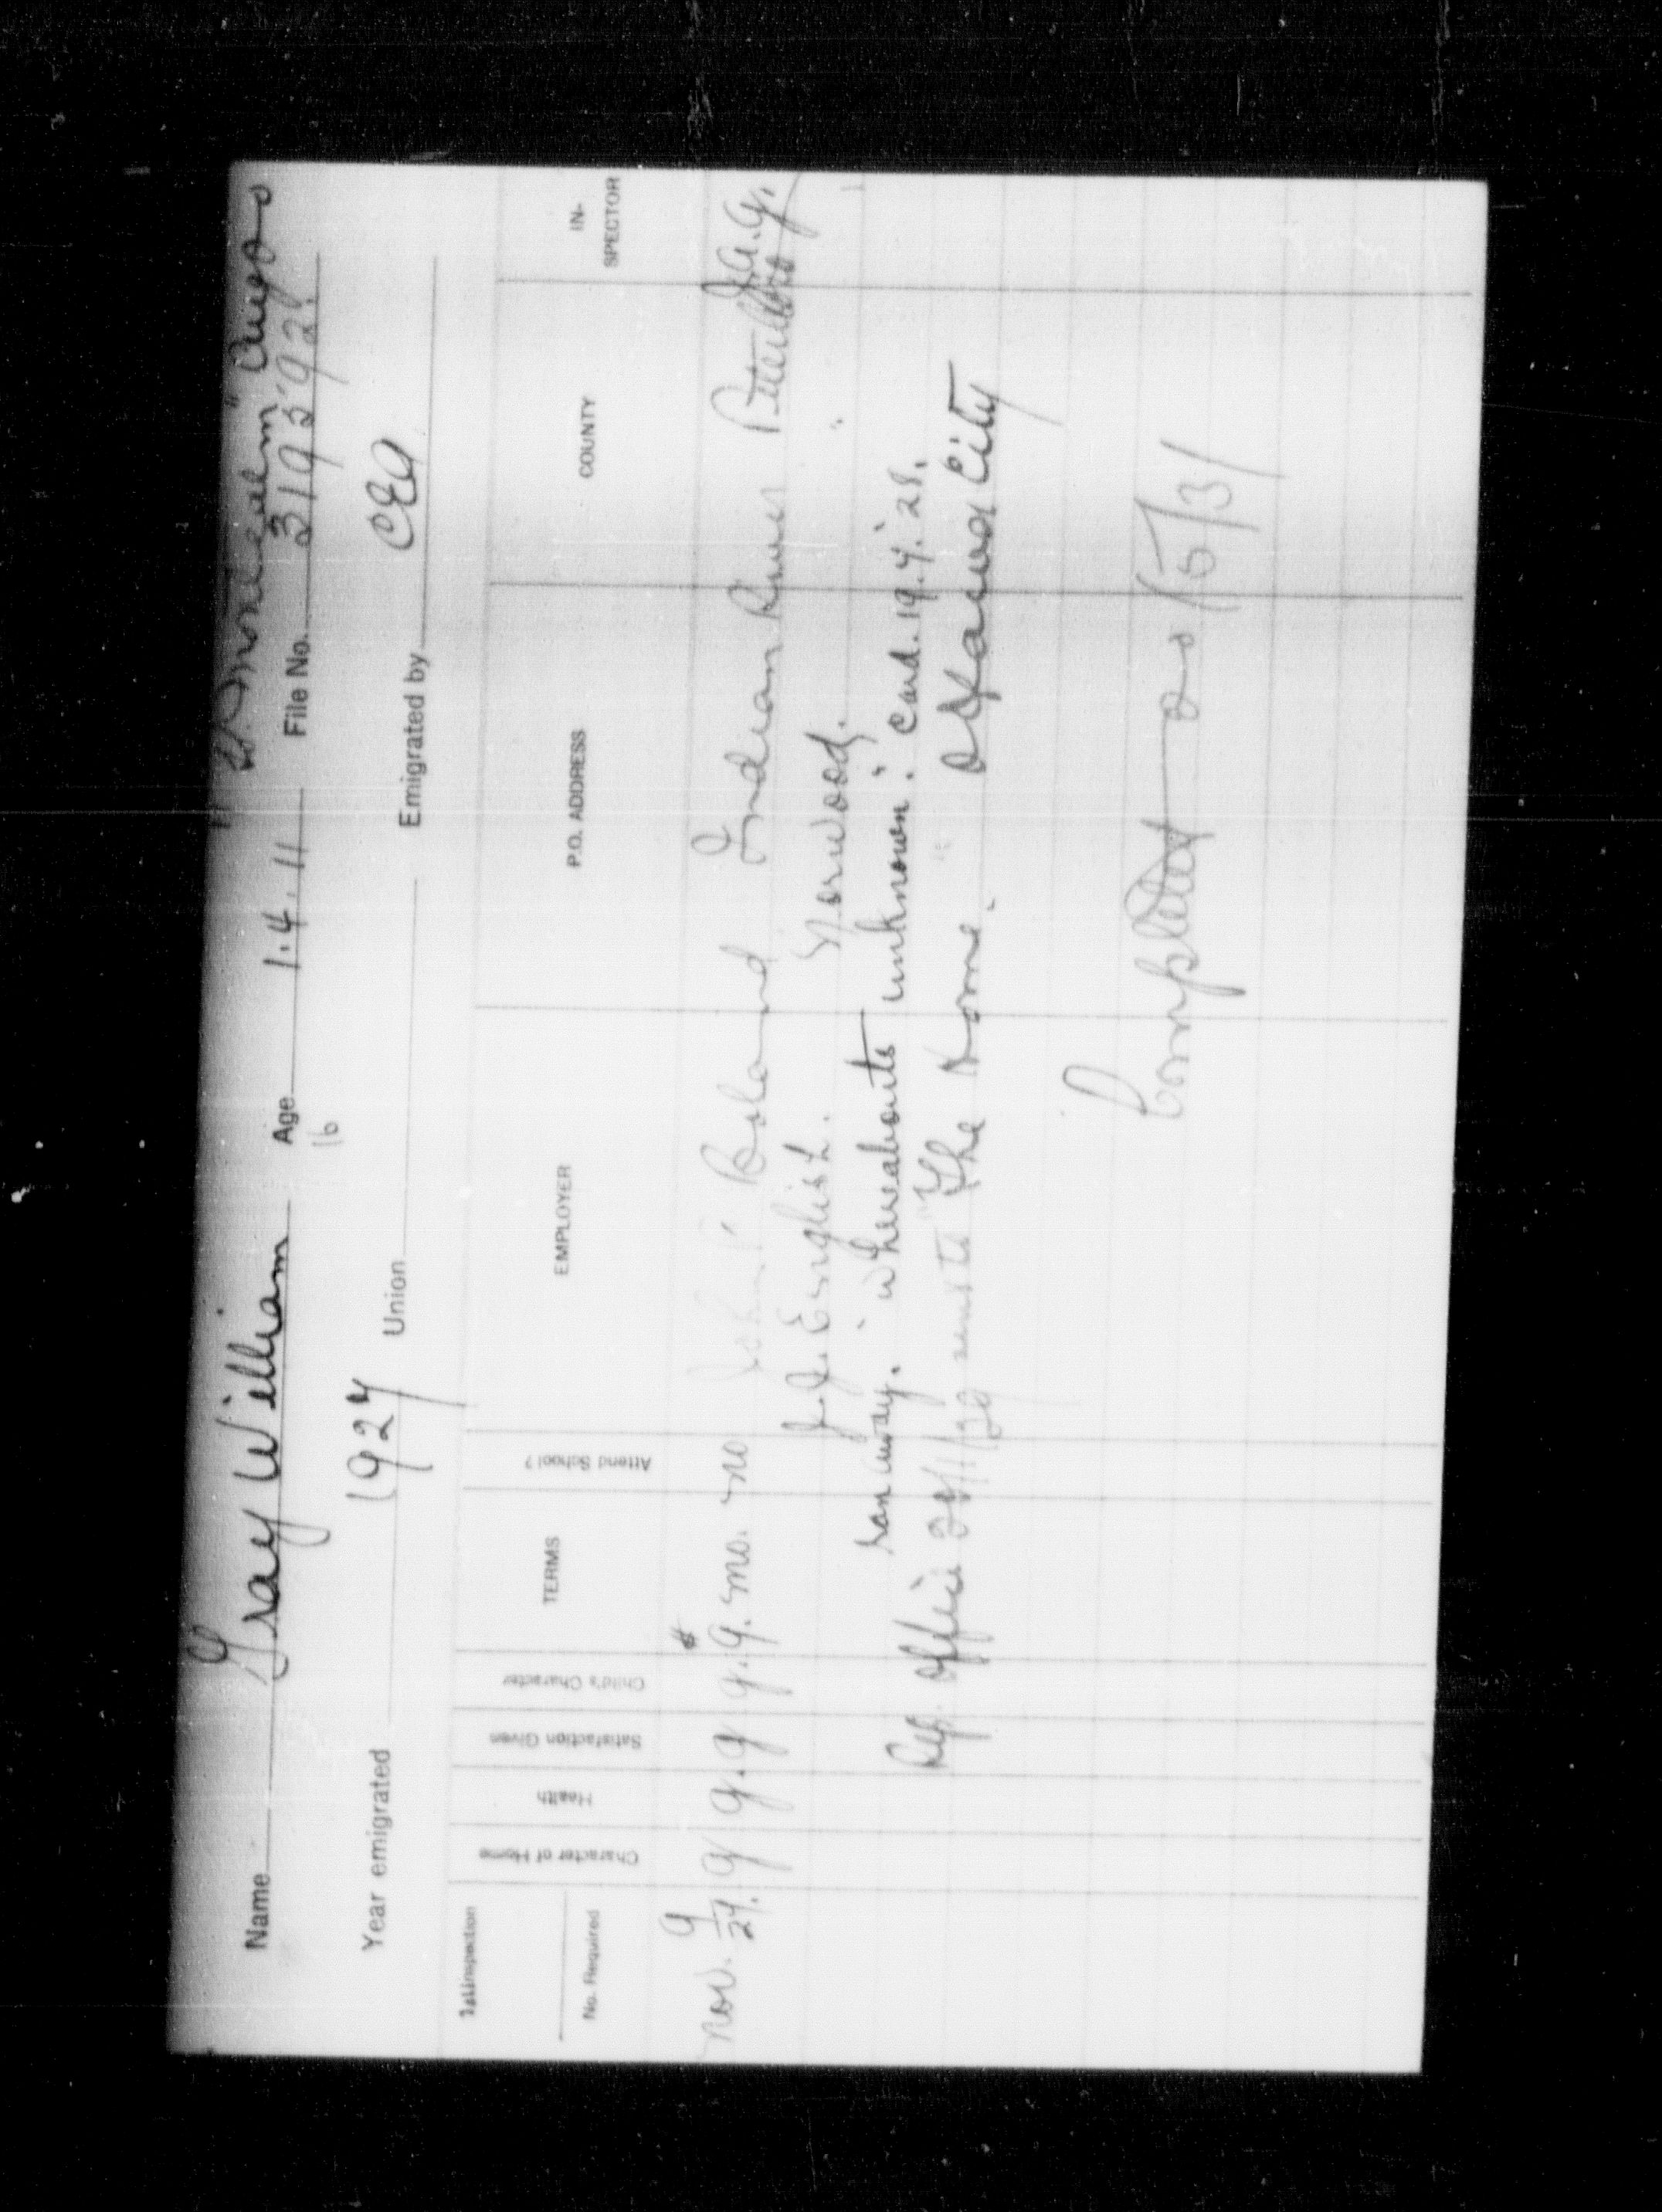 Montcalm" Aug
Name Gray William Age 1.4.11 File No. 319392
16
Year emigrated 1927 Union Emigrated by CEA
1st Inspection
No. Required
Character of Home
Health
Satisfaction Given
Child's Character
TERMS
Attend School?
EMPLOYER
P.O. ADDRESS
COUNTY
IN-
SPECTOR
Nov. 9/27. g g. g g. $9. mo. no Boland Indian River Peterboro J.A.G.
J.J. English. Norwood.
ran away. "whereabouts unknown." card. 19.4.28.
Rep. Office "The Home. Ottawa City
Completed 15/31